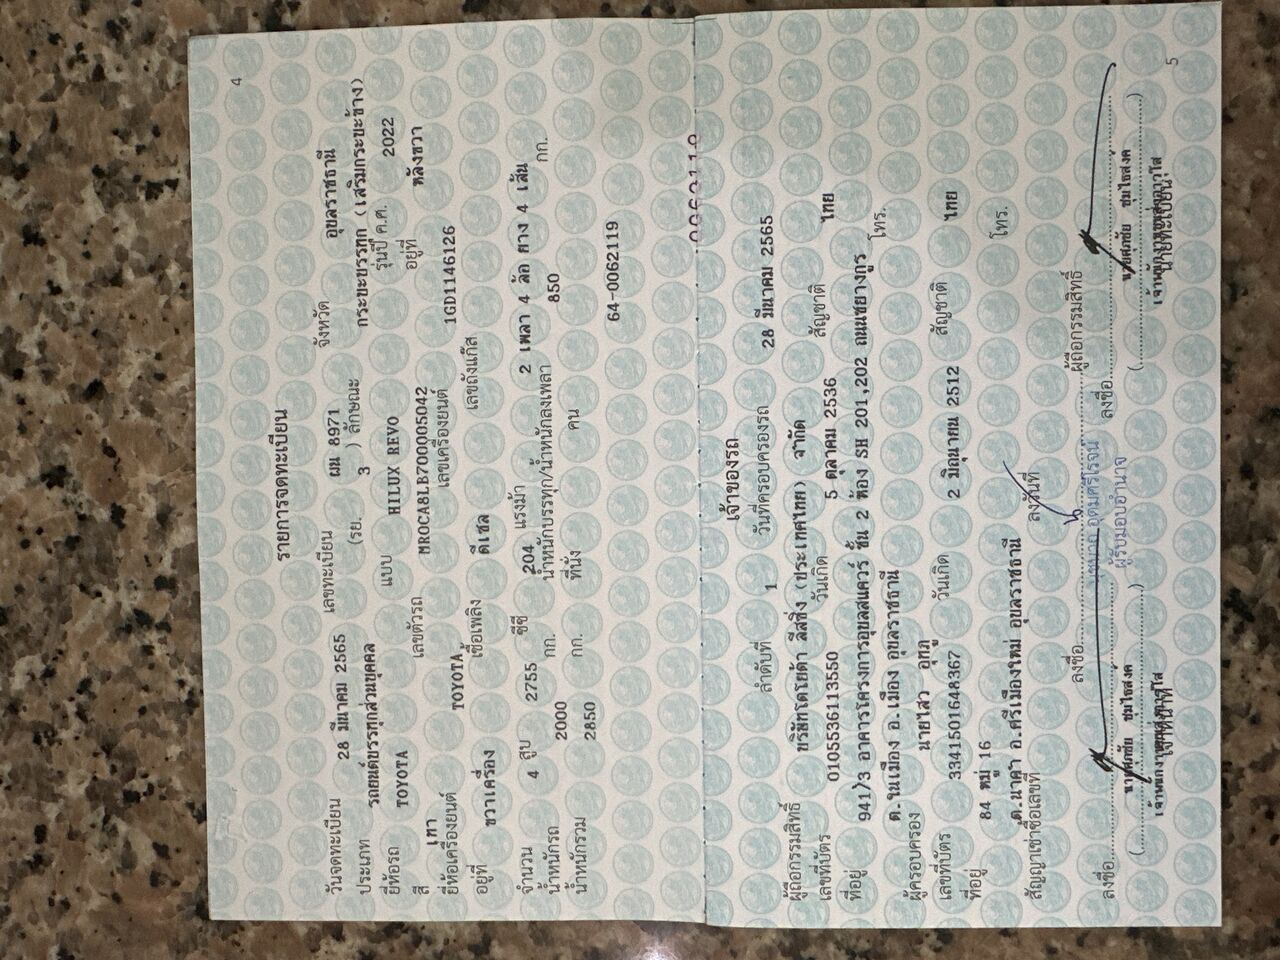 4
รายการจดทะเบียน
วันจดทะเบียน 28 มีนาคม 2565 เลขทะเบียน ผน 8971 จังหวัด อุบลราชธานี
ประเภท รถยนต์บรรทุกส่วนบุคคล (รย. 3 ) ลักษณะ กระบะบรรทุก (เสริมกระบะข้าง)
ยี่ห้อรถ TOYOTA แบบ HILUX REVO รุ่นปี ค.ศ. 2022
สี เทา เลขตัวรถ MR0CA8LB700005042 อยู่ที่ หลังขวา
ยี่ห้อเครื่องยนต์ TOYOTA เลขเครื่องยนต์ 1GD1146126
อยู่ที่ ขวาเครื่อง เชื้อเพลิง ดีเซล เลขถังแก๊ส
จำนวน 4 สูบ 2755 ซีซี 204 แรงม้า 2 เพลา 4 ล้อ ยาง 4 เส้น
น้ำหนักรถ 2000 กก. น้ำหนักบรรทุก/น้ำหนักลงเพลา 850 กก.
น้ำหนักรวม 2850 กก. ที่นั่ง คน
64-0062119
เจ้าของรถ
ลำดับที่ 1 วันที่ครอบครองรถ 28 มีนาคม 2565
ผู้ถือกรรมสิทธิ์ บริษัทโตโยต้า ลีสซิ่ง (ประเทศไทย) จำกัด
เลขที่บัตร 0105536113550 วันเกิด 5 ตุลาคม 2536 สัญชาติ ไทย
ที่อยู่ 941/3 อาคารโครงการอุบลสแควร์ ชั้น 2 ห้อง SH 201,202 ถนนชยางกูร
ต.ในเมือง อ.เมือง อุบลราชธานี โทร.
ผู้ครอบครอง นายไสว
เลขที่บัตร 3341501648367 วันเกิด 2 มิถุนายน 2512 สัญชาติ ไทย
ที่อยู่ 84 หมู่ 16
ต.นาคำ อ.ศรีเมืองใหม่ อุบลราชธานี โทร.
สัญญาเช่าซื้อเลขที่ ลงวันที่
ลงชื่อ ผู้ถือกรรมสิทธิ์
ผู้รับมอบอำนาจ
ลงชื่อ ลงชื่อ
5